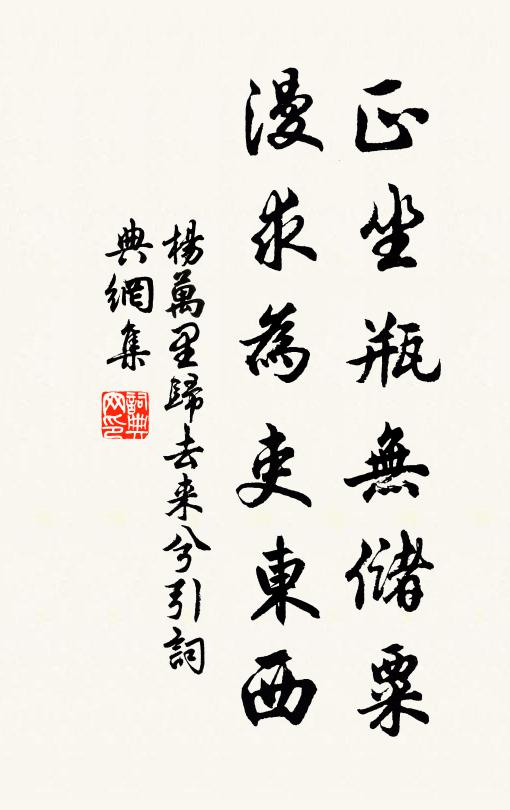 正坐瓶無儲粟
漫求為吏東西
楊萬里歸去来兮引詞
典網集
詞典网印